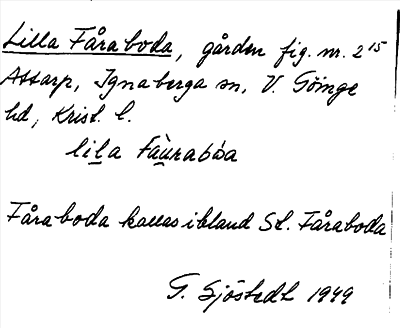 Lilla Fåraboda, gården fig. nr. 2¹⁵
Attarp, Ignaberga sn, V. Göinge
hd, Krist. l.
lila Fàuraboa
Fåraboda kallas ibland St. Fåraboda
G. Sjöstedt 1949